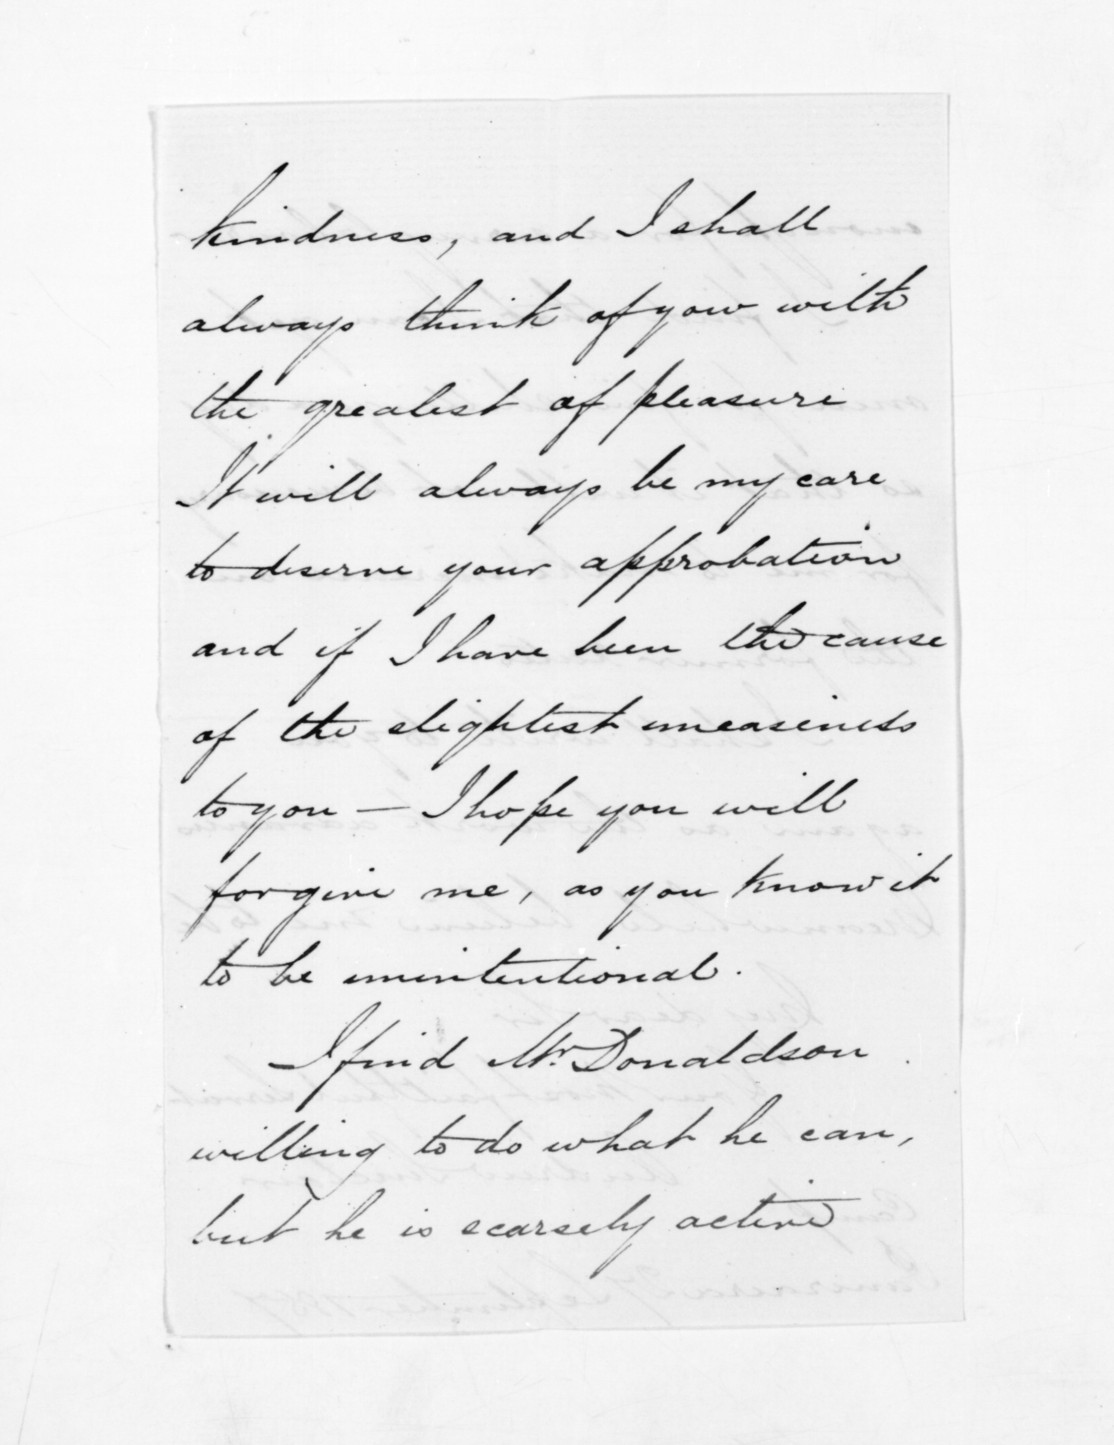 kindness, and I shall
always think of you with
the greatest of pleasure
It will always be my care
to deserve your approbation
and if I have been the cause
of the slightest uneasiness
to you — I hope you will
forgive me, as you know it
to be unintentional.
I find Mr. Donaldson
willing to do what he can,
but he is scarsely active